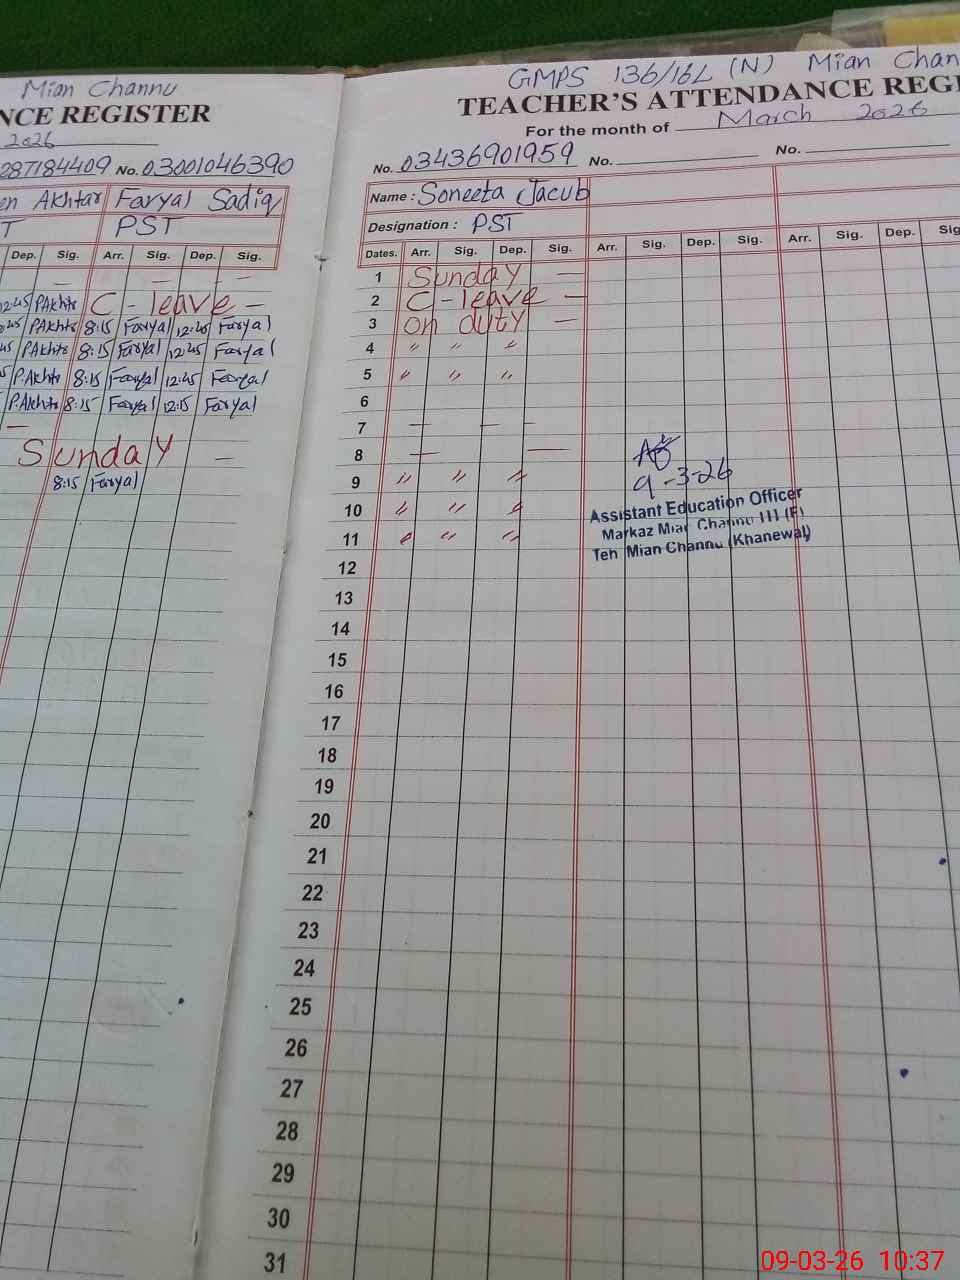 Mian Channu
NCE REGISTER
2026
287184409 No. 03001046390
en Akhtar Faryal Sadiq
T PST
Dep. Sig. Arr. Sig. Dep. Sig.
— — —
12:45 P.Akhtr C - leave —
P.Akhtr 8:15 Faryal 12:45 Faryal
P.Akhtr 8:15 Faryal 12:45 Faryal
P.Akhtr 8:15 Faryal 12:45 Faryal
P.Akhtr 8:15 Faryal 12:15 Faryal
—
Sunday —
8:15 Faryal
GMPS 136/16L (N) Mian Chan
TEACHER'S ATTENDANCE REGI
For the month of March 2026
No. 03436901959 No. No.
Name : Soneeta Jacub
Designation : PST
Dates. Arr. Sig. Dep. Sig. Arr. Sig. Dep. Sig. Arr. Sig. Dep. Sig
1 Sunday —
2 C - leave —
3 on duty —
4 " " "
5 " " "
6
7 — — -
8 — —
9 " " "
10 " " "
11 " " "
12
13
14
15
16
17
18
19
20
21
22
23
24
25
26
27
28
29
30
31
9-3-26
Assistant Education Officer
Markaz Mian Channu III (F)
Teh Mian Channu (Khanewal)
09-03-26 10:37